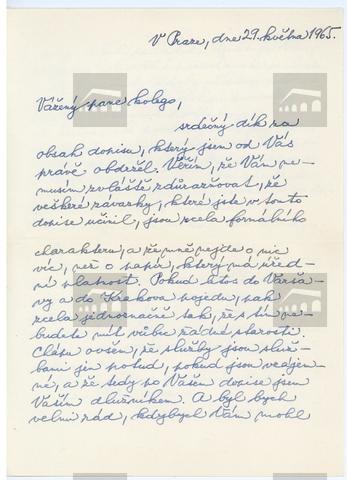 V Praze, dne 29. května 1965.
Vážený pane kolego,
srdečný dík za
obsah dopisu, který jsem od Vás
právě obdržel. Věřím, že Vám ne-
musím zvláště zdůrazňovat, že
veškeré závazky, které jste v tomto
dopise učinil, jsou zcela formálního
charakteru, a že mně nejde o nic
víc, než o papír, který má úřed-
ní platnost. Pokud letos do Varša-
vy a do Krakova pojedu, pak
zcela jednoznačně tak, že s tím ne-
budete mít vůbec žádné starosti.
Chápu ovšem, že služby jsou služ-
bami jen potud, pokud jsou vzájem-
né, a že tedy po Vašem dopise jsem
Vaším dlužníkem. A byl bych
velmi rád, kdybych Vám mohl